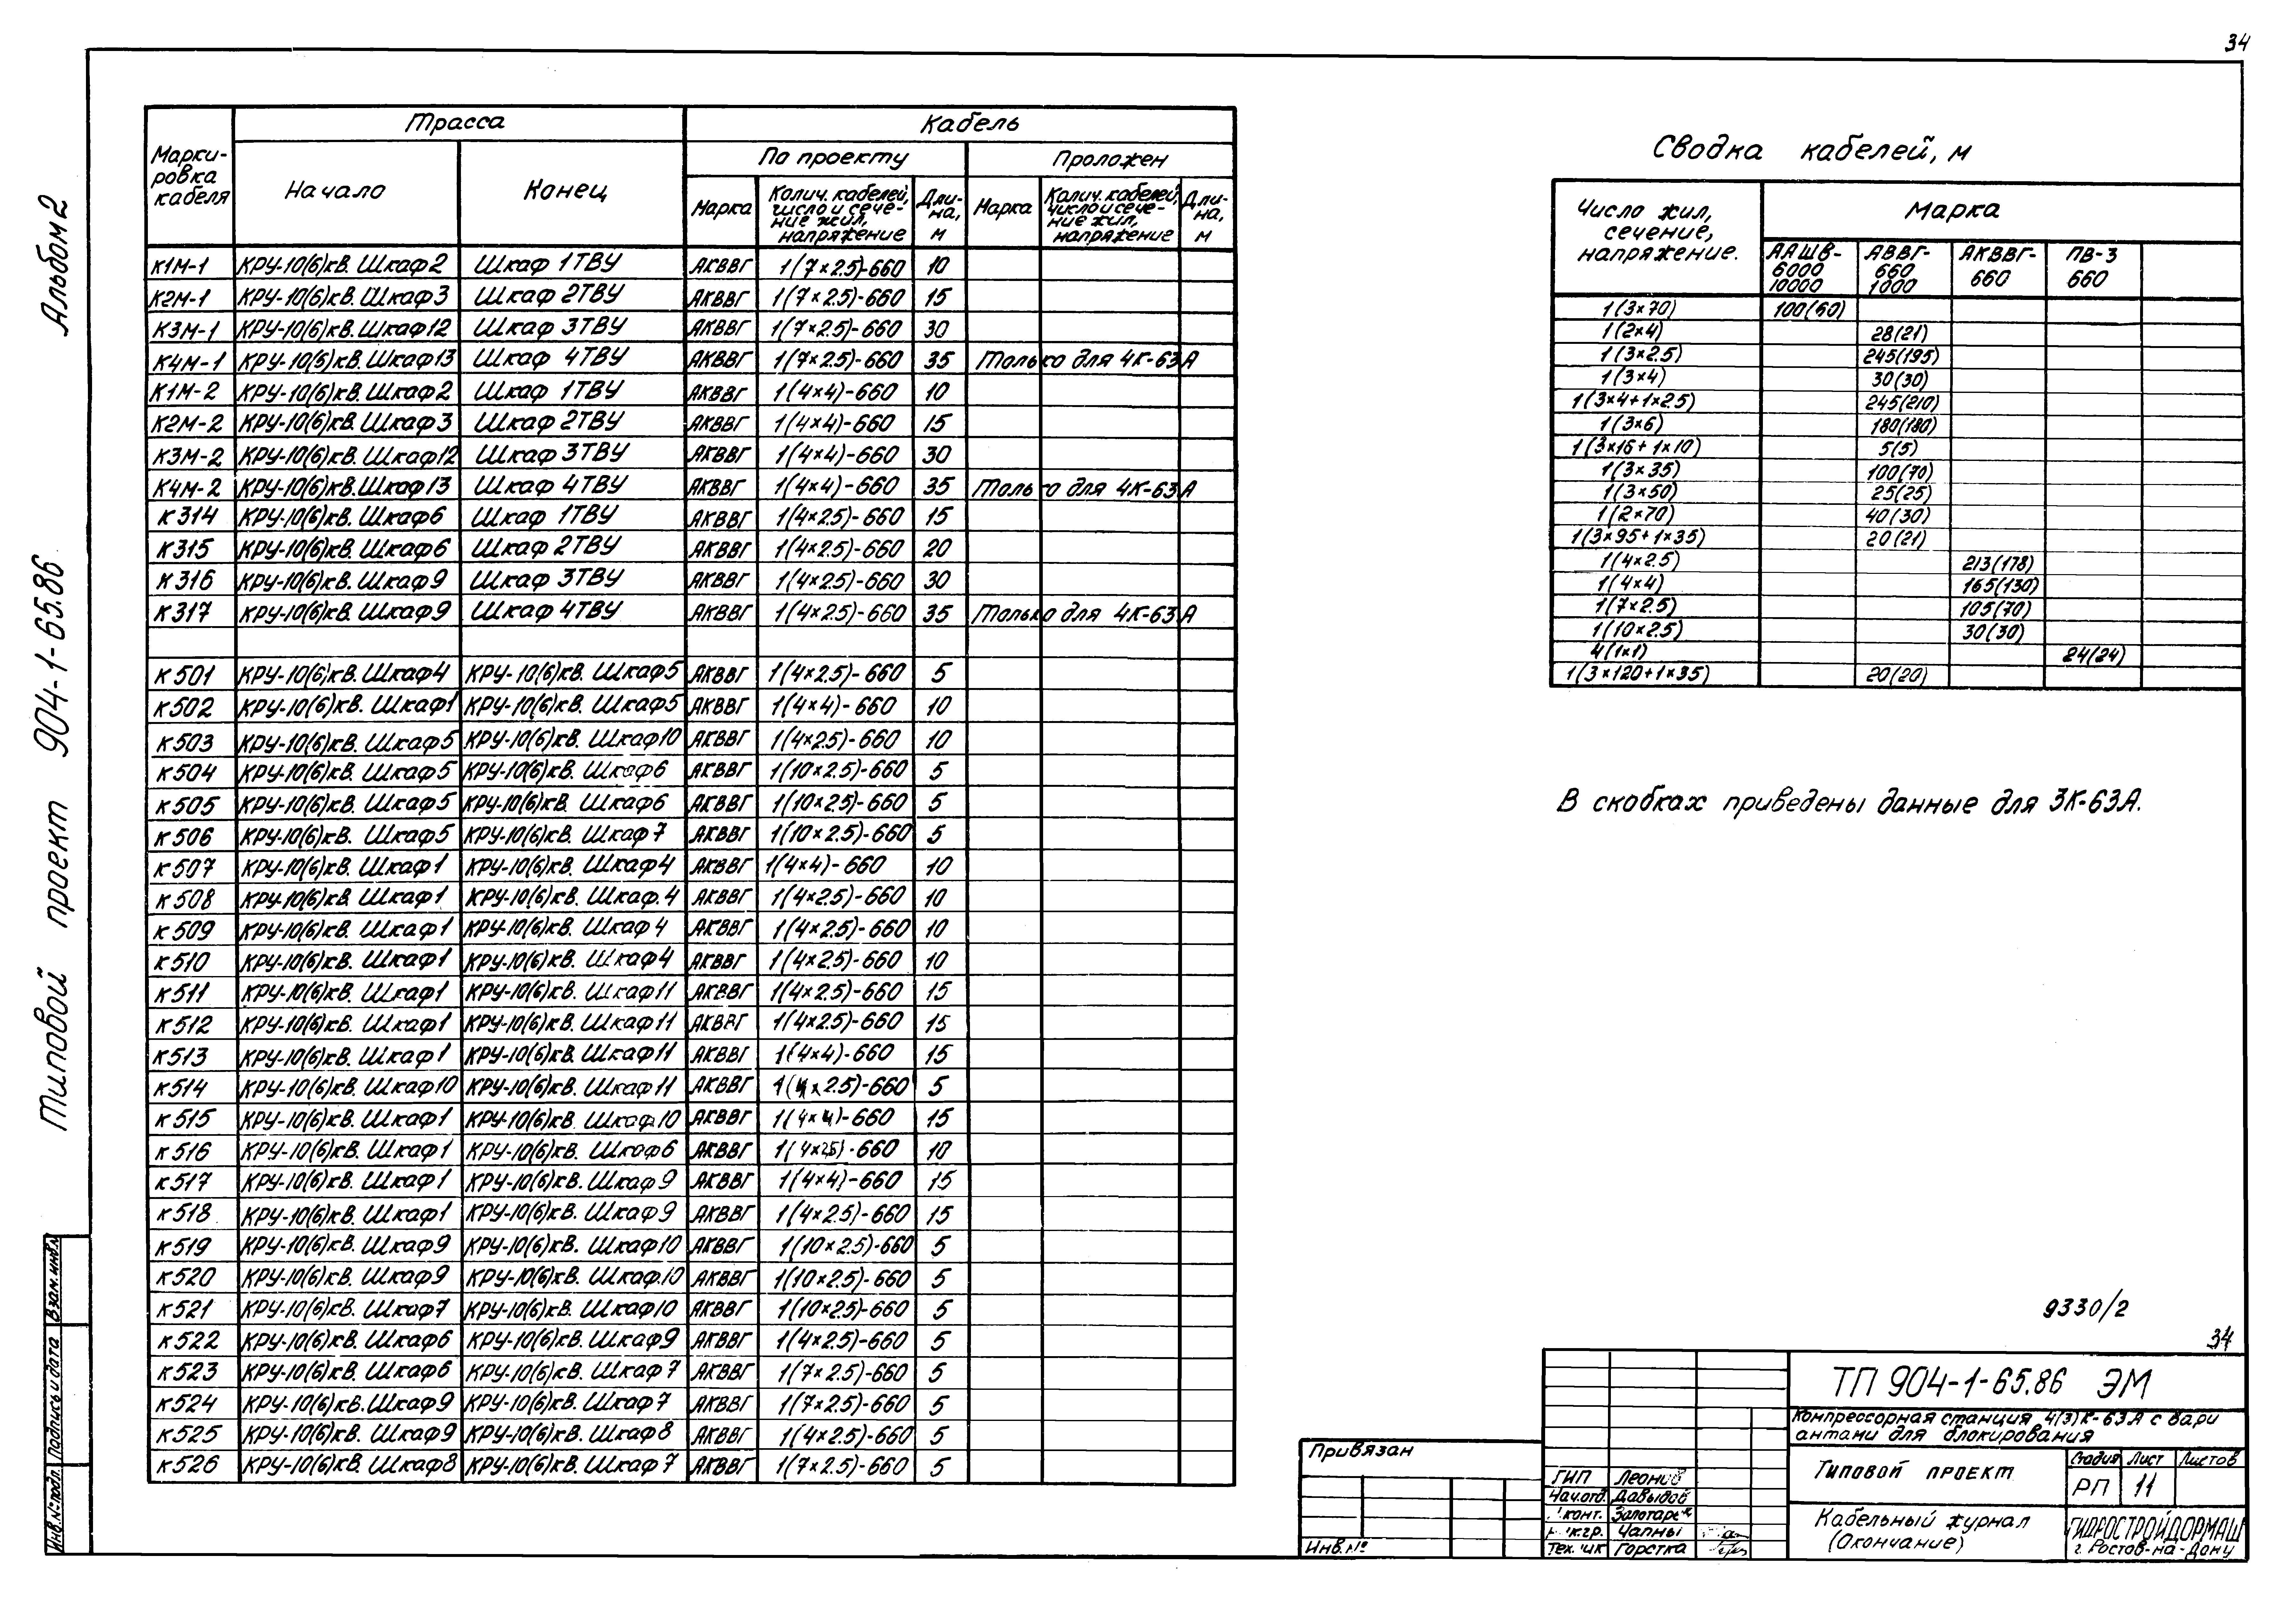 34
Альбом 2
Типовой проект 904-1-65.86
Взам. инв.№
Подпись и дата
Инв.№ подл.
Марки-ровка кабеля | Трасса | Кабель
Начало | Конец | По проекту | Проложен
Марка | Колич. кабелей, число и сече-ние жил, напряжение | Дли-на, м | Марка | Колич. кабелей, число и сече-ние жил, напряжение | Дли-на, м
К1М-1 КРУ-10(6)кВ. Шкаф 2 Шкаф 1ТВУ АКВВГ 1(7×2.5)-660 10
К2М-1 КРУ-10(6)кВ. Шкаф 3 Шкаф 2ТВУ АКВВГ 1(7×2.5)-660 15
К3М-1 КРУ-10(6)кВ. Шкаф 12 Шкаф 3ТВУ АКВВГ 1(7×2.5)-660 30
К4М-1 КРУ-10(6)кВ. Шкаф 13 Шкаф 4ТВУ АКВВГ 1(7×2.5)-660 35 Только для 4К-63А
К1М-2 КРУ-10(6)кВ. Шкаф 2 Шкаф 1ТВУ АКВВГ 1(4×4)-660 10
К2М-2 КРУ-10(6)кВ. Шкаф 3 Шкаф 2ТВУ АКВВГ 1(4×4)-660 15
К3М-2 КРУ-10(6)кВ. Шкаф 12 Шкаф 3ТВУ АКВВГ 1(4×4)-660 30
К4М-2 КРУ-10(6)кВ. Шкаф 13 Шкаф 4ТВУ АКВВГ 1(4×4)-660 35 Только для 4К-63А
К314 КРУ-10(6)кВ. Шкаф 6 Шкаф 1ТВУ АКВВГ 1(4×2.5)-660 15
К315 КРУ-10(6)кВ. Шкаф 6 Шкаф 2ТВУ АКВВГ 1(4×2.5)-660 20
К316 КРУ-10(6)кВ. Шкаф 9 Шкаф 3ТВУ АКВВГ 1(4×2.5)-660 30
К317 КРУ-10(6)кВ. Шкаф 9 Шкаф 4ТВУ АКВВГ 1(4×2.5)-660 35 Только для 4К-63А
К501 КРУ-10(6)кВ. Шкаф 4 КРУ-10(6)кВ. Шкаф 5 АКВВГ 1(4×2.5)-660 5
К502 КРУ-10(6)кВ. Шкаф 1 КРУ-10(6)кВ. Шкаф 5 АКВВГ 1(4×4)-660 10
К503 КРУ-10(6)кВ. Шкаф 5 КРУ-10(6)кВ. Шкаф 10 АКВВГ 1(4×2.5)-660 10
К504 КРУ-10(6)кВ. Шкаф 5 КРУ-10(6)кВ. Шкаф 6 АКВВГ 1(10×2.5)-660 5
К505 КРУ-10(6)кВ. Шкаф 5 КРУ-10(6)кВ. Шкаф 6 АКВВГ 1(10×2.5)-660 5
К506 КРУ-10(6)кВ. Шкаф 5 КРУ-10(6)кВ. Шкаф 7 АКВВГ 1(10×2.5)-660 5
К507 КРУ-10(6)кВ. Шкаф 1 КРУ-10(6)кВ. Шкаф 4 АКВВГ 1(4×4)-660 10
К508 КРУ-10(6)кВ. Шкаф 1 КРУ-10(6)кВ. Шкаф. 4 АКВВГ 1(4×2.5)-660 10
К509 КРУ-10(6)кВ. Шкаф 1 КРУ-10(6)кВ. Шкаф 4 АКВВГ 1(4×2.5)-660 10
К510 КРУ-10(6)кВ. Шкаф 1 КРУ-10(6)кВ. Шкаф 4 АКВВГ 1(4×2.5)-660 10
К511 КРУ-10(6)кВ. Шкаф 1 КРУ-10(6)кВ. Шкаф 11 АКВВГ 1(4×2.5)-660 15
К512 КРУ-10(6)кВ. Шкаф 1 КРУ-10(6)кВ. Шкаф 11 АКВВГ 1(4×2.5)-660 15
К513 КРУ-10(6)кВ. Шкаф 1 КРУ-10(6)кВ. Шкаф 11 АКВВГ 1(4×4)-660 15
К514 КРУ-10(6)кВ. Шкаф 10 КРУ-10(6)кВ. Шкаф 11 АКВВГ 1(4×2.5)-660 5
К515 КРУ-10(6)кВ. Шкаф 1 КРУ-10(6)кВ. Шкаф.10 АКВВГ 1(4×4)-660 15
К516 КРУ-10(6)кВ. Шкаф 1 КРУ-10(6)кВ. Шкаф 6 АКВВГ 1(4×2.5)-660 10
К517 КРУ-10(6)кВ. Шкаф 1 КРУ-10(6)кВ. Шкаф 9 АКВВГ 1(4×4)-660 15
К518 КРУ-10(6)кВ. Шкаф 1 КРУ-10(6)кВ. Шкаф 9 АКВВГ 1(4×2.5)-660 15
К519 КРУ-10(6)кВ. Шкаф 9 КРУ-10(6)кВ. Шкаф 10 АКВВГ 1(10×2.5)-660 5
К520 КРУ-10(6)кВ. Шкаф 9 КРУ-10(6)кВ. Шкаф.10 АКВВГ 1(10×2.5)-660 5
К521 КРУ-10(6)кВ. Шкаф 7 КРУ-10(6)кВ. Шкаф 10 АКВВГ 1(10×2.5)-660 5
К522 КРУ-10(6)кВ. Шкаф 6 КРУ-10(6)кВ. Шкаф 9 АКВВГ 1(4×2.5)-660 5
К523 КРУ-10(6)кВ. Шкаф 6 КРУ-10(6)кВ. Шкаф 7 АКВВГ 1(7×2.5)-660 5
К524 КРУ-10(6)кВ. Шкаф 9 КРУ-10(6)кВ. Шкаф 7 АКВВГ 1(7×2.5)-660 5
К525 КРУ-10(6)кВ. Шкаф 9 КРУ-10(6)кВ. Шкаф 8 АКВВГ 1(4×2.5)-660 5
К526 КРУ-10(6)кВ. Шкаф 8 КРУ-10(6)кВ. Шкаф 7 АКВВГ 1(7×2.5)-660 5
Сводка кабелей, м
Число жил, сечение, напряжение. | Марка
ААШВ-6000 10000 | АВВГ-660 1000 | АКВВГ-660 | ПВ-3 660
1(3×70) 100(60)
1(2×4) 28(21)
1(3×2.5) 245(195)
1(3×4) 30(30)
1(3×4+1×2.5) 245(210)
1(3×6) 180(180)
1(3×16+1×10) 5(5)
1(3×35) 100(70)
1(3×50) 25(25)
1(2×70) 40(30)
1(3×95+1×35) 20(21)
1(4×2.5) 213(178)
1(4×4) 165(130)
1(7×2.5) 105(70)
1(10×2.5) 30(30)
4(1×1) 24(24)
1(3×120+1×35) 20(20)
В скобках приведены данные для 3К-63А.
9330/2
34
ТП 904-1-65.86 ЭМ
Компрессорная станция 4(3)К-63А с вари
антами для блокирования
Типовой проект
Стадия Лист Листов
РП 11
Кабельный журнал
(Окончание)
ГИДРОСТРОЙДОРМАШ
г. Ростов-на-Дону
Привязан
Инв.№
ГИП Леонов
Нач.отд. Давыдов
конт.
гр. Чапны
Тех. Горстка